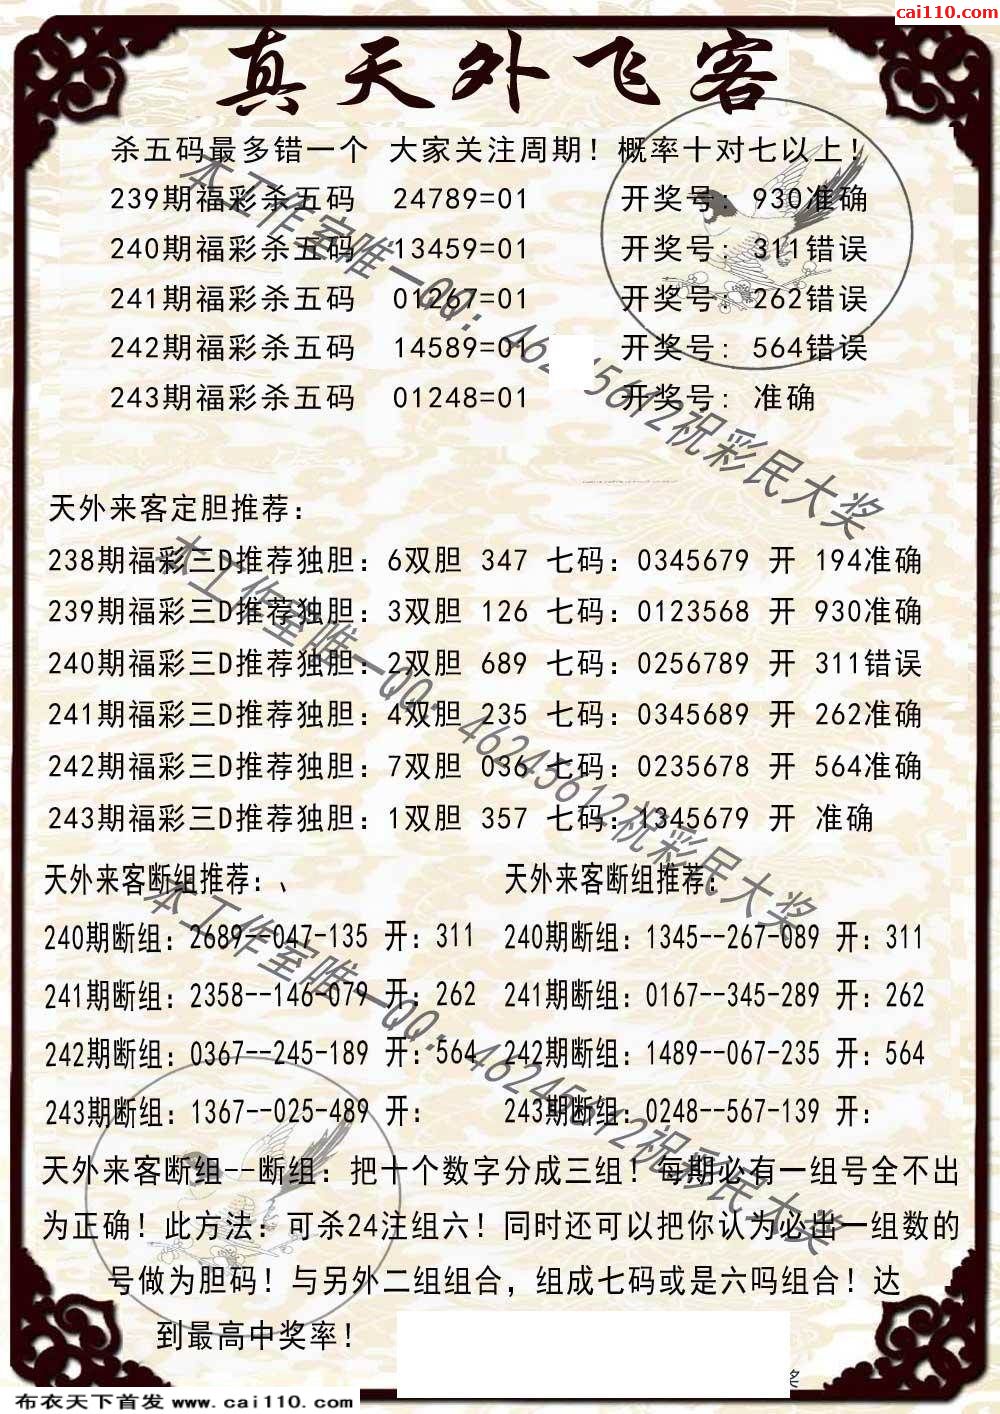 cai110.com
真天外飞客
杀五码最多错一个 大家关注周期！概率十对七以上！
239期福彩杀五码 24789=01 开奖号: 930准确
240期福彩杀五码 13459=01 开奖号: 311错误
241期福彩杀五码 01267=01 开奖号: 262错误
242期福彩杀五码 14589=01 开奖号: 564错误
243期福彩杀五码 01248=01 开奖号: 准确
本工作室唯一QQ: 46245612祝彩民大奖
天外来客定胆推荐:
238期福彩三D推荐独胆: 6双胆 347 七码: 0345679 开 194准确
239期福彩三D推荐独胆: 3双胆 126 七码: 0123568 开 930准确
240期福彩三D推荐独胆: 2双胆 689 七码: 0256789 开 311错误
241期福彩三D推荐独胆: 4双胆 235 七码: 0345689 开 262准确
242期福彩三D推荐独胆: 7双胆 036 七码: 0235678 开 564准确
243期福彩三D推荐独胆: 1双胆 357 七码: 1345679 开 准确
本工作室唯一QQ: 46245612祝彩民大奖
天外来客断组推荐:、 天外来客断组推荐:
240期断组: 2689--047-135 开: 311 240期断组: 1345--267-089 开: 311
241期断组: 2358--146-079 开: 262 241期断组: 0167--345-289 开: 262
242期断组: 0367--245-189 开: 564 242期断组: 1489--067-235 开: 564
243期断组: 1367--025-489 开: 243期断组: 0248--567-139 开:
本工作室唯一QQ: 46245612祝彩民大奖
天外来客断组--断组: 把十个数字分成三组！每期必有一组号全不出
为正确！此方法: 可杀24注组六！同时还可以把你认为必出一组数的
号做为胆码！与另外二组组合，组成七码或是六吗组合！达
到最高中奖率！
奖
布衣天下首发 www.cai110.com